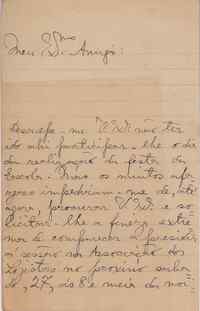 Meu Ex.mo Amigo:
Desculpe-me V. Ex. não ter
ido ahi participar-lhe o dia
da realização da festa da
Escola. Mas os muitos afa-
zeres impediram-me de, até
agora, procurar V. Ex. e so-
licitar-lhe a fineza extre-
ma de comparecer e presidir
a sessão na Associação dos
Lojistas no proximo sabba-
do, 27, ás 8 e meia da noi-